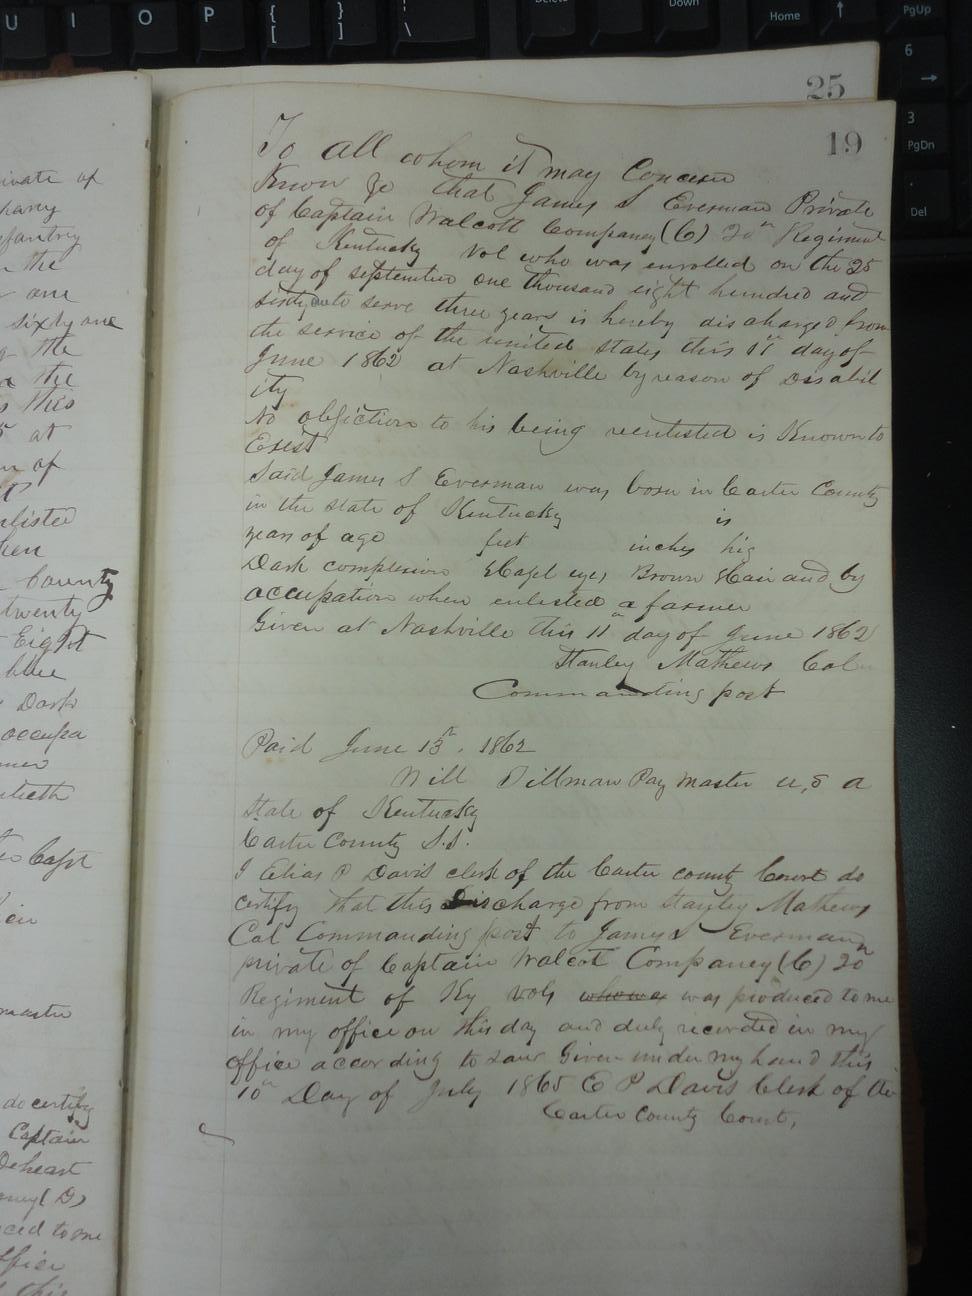 U I O P { [ } ] | \ Delete Down Home ↑ PgUp
6 →
3 PgDn
. Del
25
19
To all whom it may Concern
Know ye that James S Everman Private
of Captain Walcott Compancy (C) 20th Regiment
of Kentucky Vol who was enrolled on the 25
day of september one thousand eight hundred and
sixty one to serve three years is hereby discharged from
the service of the united states this 11th day of
June 1862 at Nashville by reason of Disabil
ity
No objection to his being reenlisted is Known to
Exest
Said James S Everman was born in Carter County
in the state of Kentucky is
years of age feet inches hig
Dark complexion Hazel eyes Brown Hair and by
occupation when enlisted a farmer
Given at Nashville this 11th day of June 1862
Stanley Mathews Col
Commanding post
Paid June 13th. 1862
Will Dillman Pay master U, S A
State of Kentucky
Carter County S.S.
I Elias P Davis clerk of the Carter county Court do
certify that this Discharge from Stanley Mathews
Col Commanding post to James S Evermann
private of Captain Walcot Compancy (C) 20th
Regiment of Ky vols who was was produced to me
in my office on this day and duly recorded in my
office according to Law Given under my hand this
10th Day of July 1865 E P Davis Clerk of the
Carter County Court,
ivate of
pany
nfantry
n the
one
sixty one
the
the
this
5 at
of
nlisted
County
twenty
Eight
blue
Dark
occupa
ntieth
Capt
master
do certify
Captain
Deheart
ancy (D)
ced to me
office
this